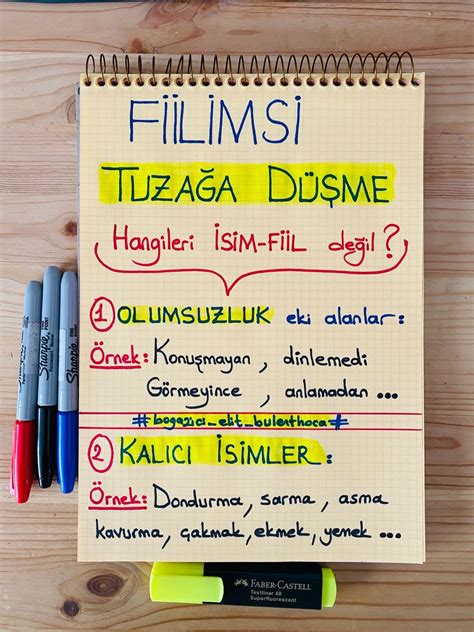 FİİLİMSİ
TUZAĞA DÜŞME
Hangileri İSİM-FİİL değil?
1 OLUMSUZLUK eki alanlar:
Örnek: Konuşmayan, dinlemedi
Görmeyince, anlamadan ...
#bogazici_elit_bulenthoca#
2 KALICI İSİMLER:
Örnek: Dondurma, sarma, asma
kavurma, çakmak, ekmek, yemek ...
Sharpie
Sharpie
Sharpie
FABER-CASTELL
Textliner 48
Superfluorescent